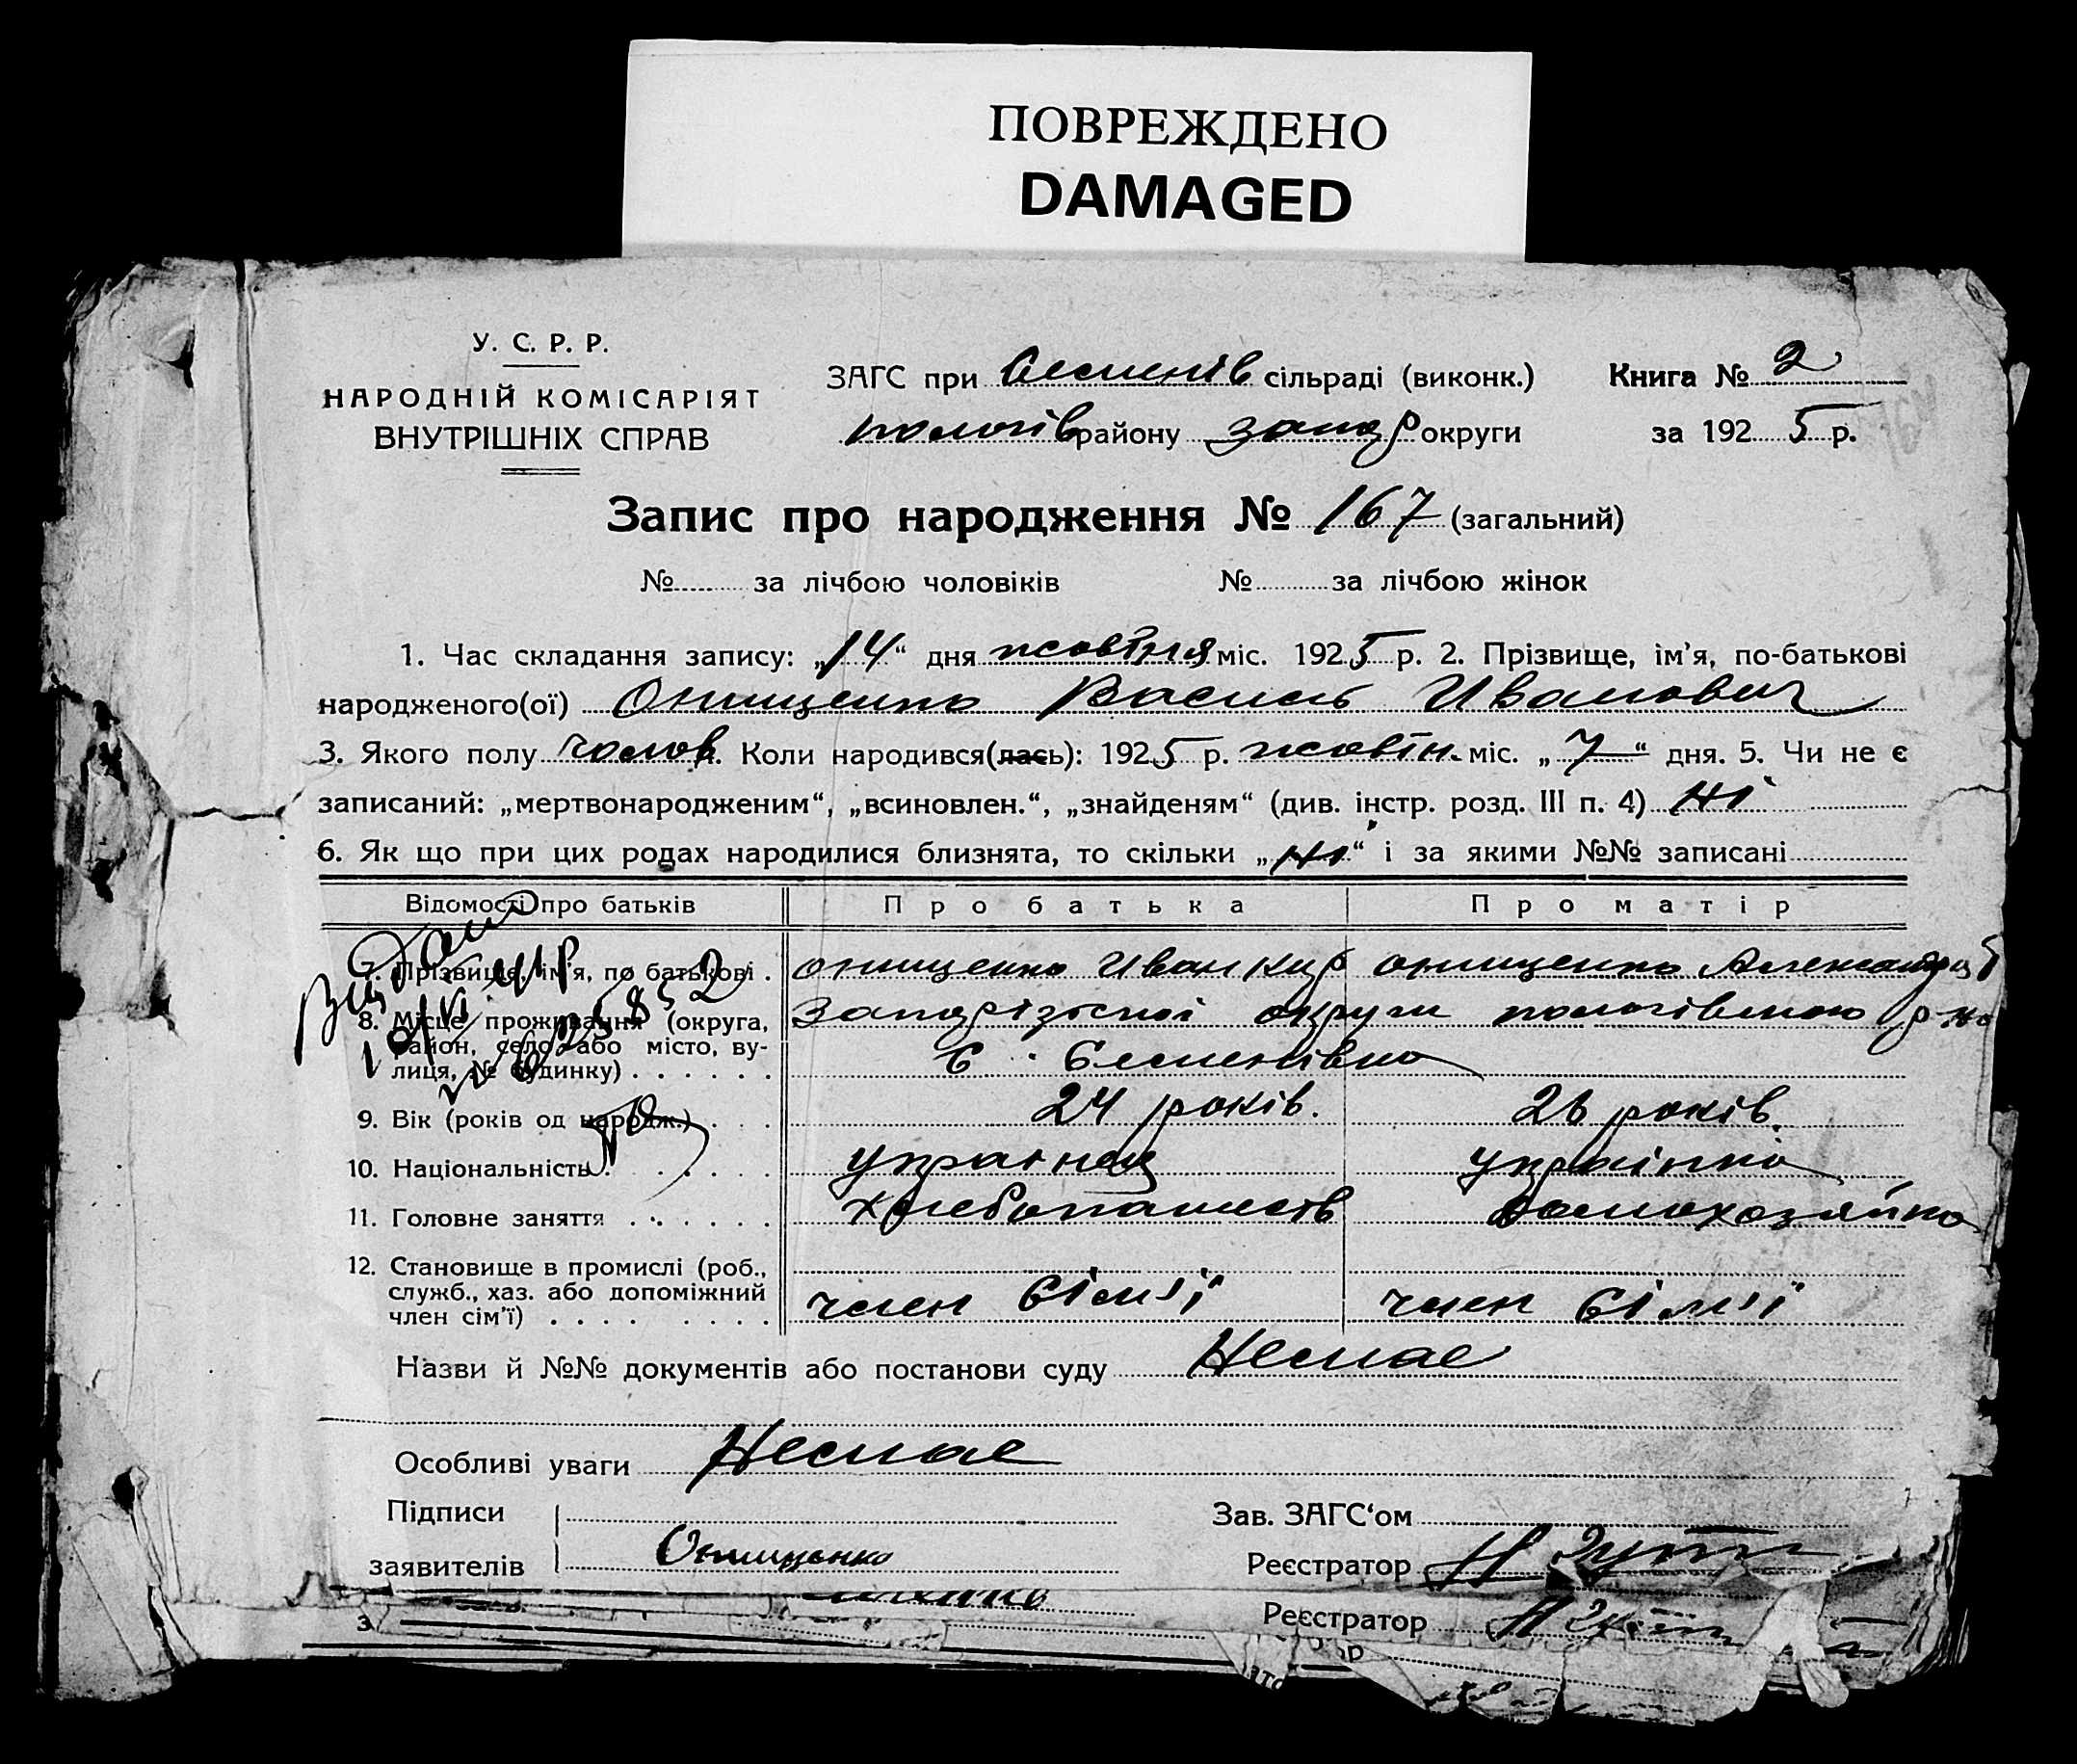 ПОВРЕЖДЕНО
DAMAGED
У. С. Р. Р.
НАРОДНІЙ КОМІСАРІЯТ
ВНУТРІШНІХ СПРАВ
ЗАГС при сільраді (виконк.)
пологів району запор округи
Книга № 2
за 1925 р.
Запис про народження № 167 (загальний)
№ за лічбою чоловіків № за лічбою жінок
1. Час складання запису: „14“ дня жовтня міс. 1925 р. 2. Прізвище, ім'я, по-батькові
народженого(ої) Онищенко Василь Иванович
3. Якого полу чолов. Коли народився(лась): 1925 р. жовтн. міс. „7“ дня. 5. Чи не є
записаний: „мертвонародженим“, „всиновлен.“, „знайденям“ (див. інстр. розд. III п. 4) ні
6. Як що при цих родах народилися близнята, то скільки „ні“ і за якими №№ записані
Відомості про батьків Про батька Про матір
7. Прізвище, ім'я, по батькові . онищенко Иван Кир онищенко Александра
8. Місце проживання (округа, район, село або місто, вулиця, № будинку) . . . . . . Запорізької округи пологівського р-на
с. Семенівка
9. Вік (років од народж.) . . . 24 років. 26 років.
10. Національність . . . . . українец українка
11. Головне заняття . . . . . . хлебопашеств домохозяйка
12. Становище в промислі (роб., служб., хаз. або допоміжний член сім'ї) . . . . . . . . член сім'ї член сім'ї
Назви й №№ документів або постанови суду Немае
Особливі уваги Немае
Підписи
заявителів Онищенко
Зав. ЗАГС'ом
Реєстратор
Реєстратор